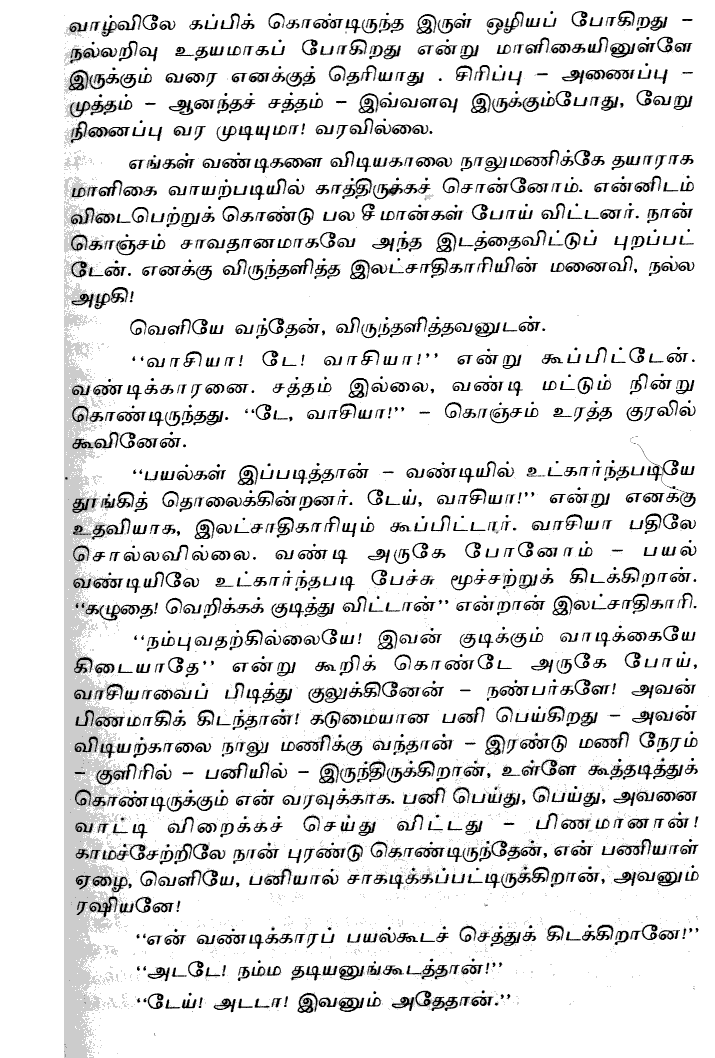 வாழ்விலே கப்பிக் கொண்டிருந்த இருள் ஒழியப் போகிறது –
நல்லறிவு உதயமாகப் போகிறது என்று மாளிகையினுள்ளே
இருக்கும் வரை எனக்குத் தெரியாது . சிரிப்பு – அணைப்பு –
முத்தம் – ஆனந்தச் சத்தம் – இவ்வளவு இருக்கும்போது, வேறு
நினைப்பு வர முடியுமா! வரவில்லை.
எங்கள் வண்டிகளை விடியகாலை நாலுமணிக்கே தயாராக
மாளிகை வாயற்படியில் காத்திருக்கச் சொன்னோம். என்னிடம்
விடைபெற்றுக் கொண்டு பல சீமான்கள் போய் விட்டனர். நான்
கொஞ்சம் சாவதானமாகவே அந்த இடத்தைவிட்டுப் புறப்பட்
டேன். எனக்கு விருந்தளித்த இலட்சாதிகாரியின் மனைவி, நல்ல
அழகி!
வெளியே வந்தேன், விருந்தளித்தவனுடன்.
“வாசியா! டே! வாசியா!” என்று கூப்பிட்டேன்.
வண்டிக்காரனை. சத்தம் இல்லை, வண்டி மட்டும் நின்று
கொண்டிருந்தது. “டே, வாசியா!” – கொஞ்சம் உரத்த குரலில்
கூவினேன்.
“பயல்கள் இப்படித்தான் – வண்டியில் உட்கார்ந்தபடியே
தூங்கித் தொலைக்கின்றனர். டேய், வாசியா!” என்று எனக்கு
உதவியாக, இலட்சாதிகாரியும் கூப்பிட்டார். வாசியா பதிலே
சொல்லவில்லை. வண்டி அருகே போனோம் – பயல்
வண்டியிலே உட்கார்ந்தபடி பேச்சு மூச்சற்றுக் கிடக்கிறான்.
“கழுதை! வெறிக்கக் குடித்து விட்டான்” என்றான் இலட்சாதிகாரி.
“நம்புவதற்கில்லையே! இவன் குடிக்கும் வாடிக்கையே
கிடையாதே” என்று கூறிக் கொண்டே அருகே போய்,
வாசியாவைப் பிடித்து குலுக்கினேன் – நண்பர்களே! அவன்
பிணமாகிக் கிடந்தான்! கடுமையான பனி பெய்கிறது – அவன்
விடியற்காலை நாலு மணிக்கு வந்தான் – இரண்டு மணி நேரம்
– குளிரில் – பனியில் – இருந்திருக்கிறான், உள்ளே கூத்தடித்துக்
கொண்டிருக்கும் என் வரவுக்காக. பனி பெய்து, பெய்து, அவனை
வாட்டி விறைக்கச் செய்து விட்டது – பிணமானான்!
காமச்சேற்றிலே நான் புரண்டு கொண்டிருந்தேன், என் பணியாள்
ஏழை, வெளியே, பனியால் சாகடிக்கப்பட்டிருக்கிறான், அவனும்
ரஷியனே!
“என் வண்டிக்காரப் பயல்கூடச் செத்துக் கிடக்கிறானே!”
“அடடே! நம்ம தடியனுங்கூடத்தான்!”
“டேய்! அடடா! இவனும் அதேதான்.”